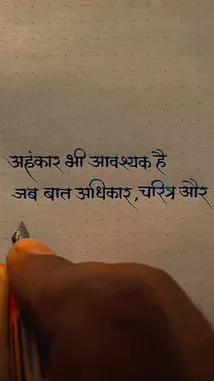 अहंकार भी आवश्यक है
जब बात अधिकार, चरित्र और